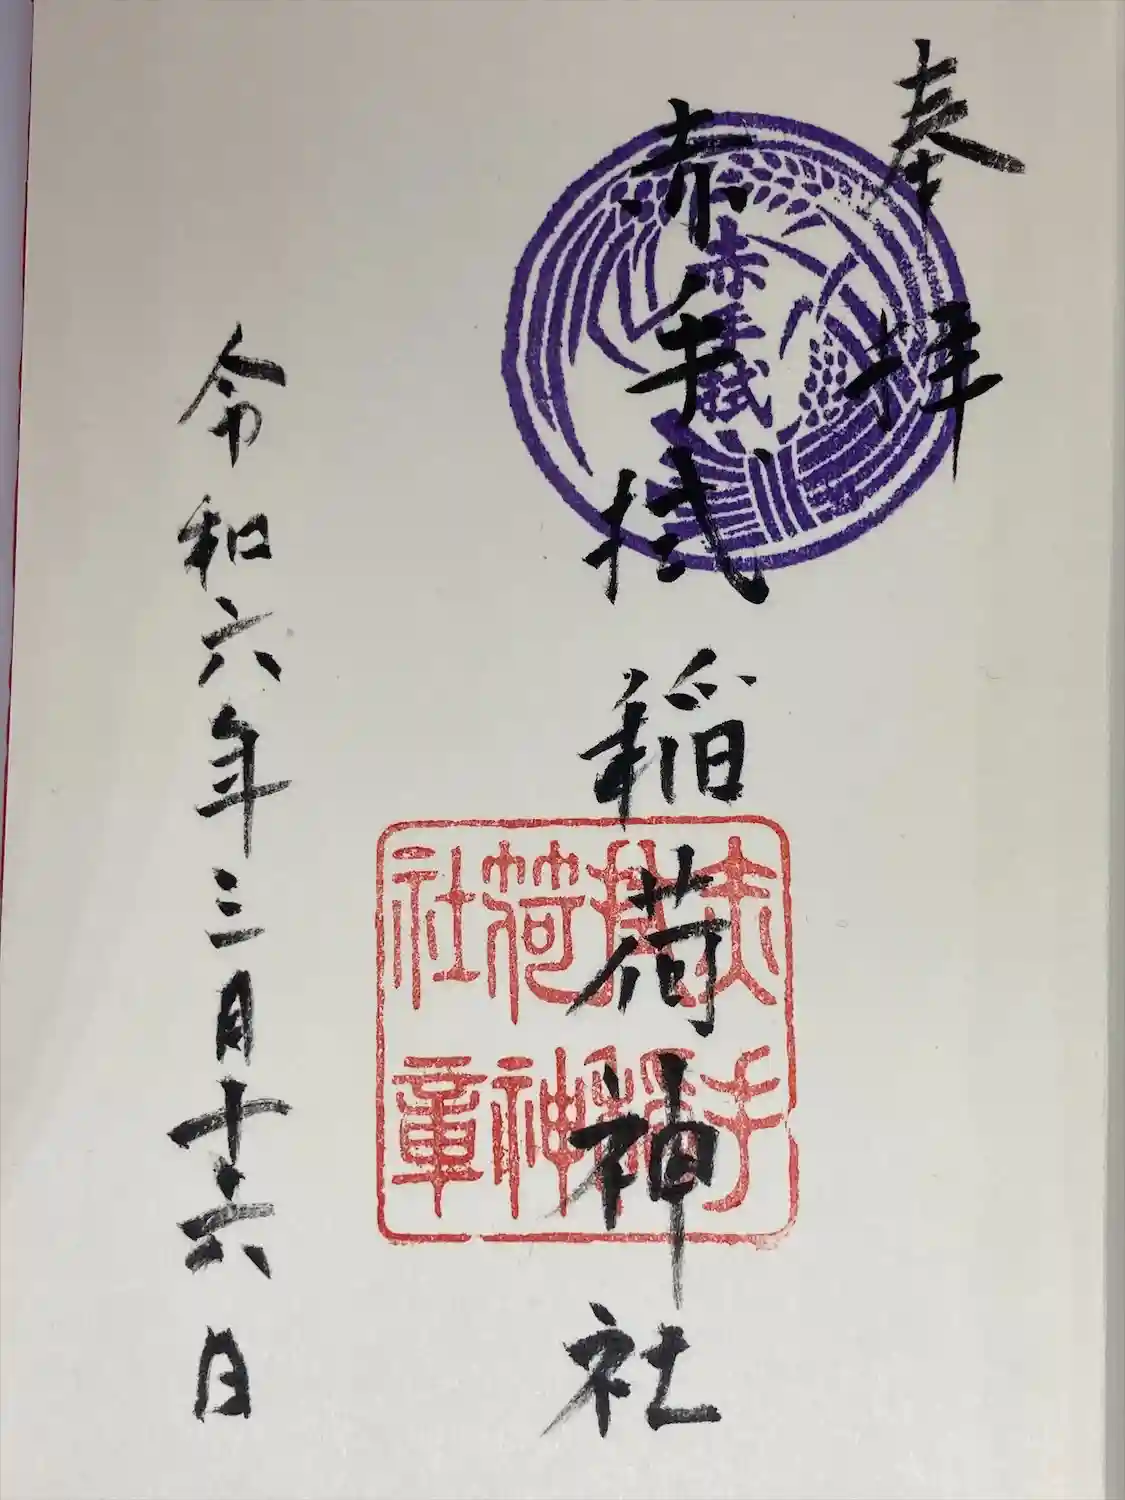 奉拝
赤手拭稲荷神社
令和六年三月十六日
赤手拭
赤手
拭稲
荷神
社章